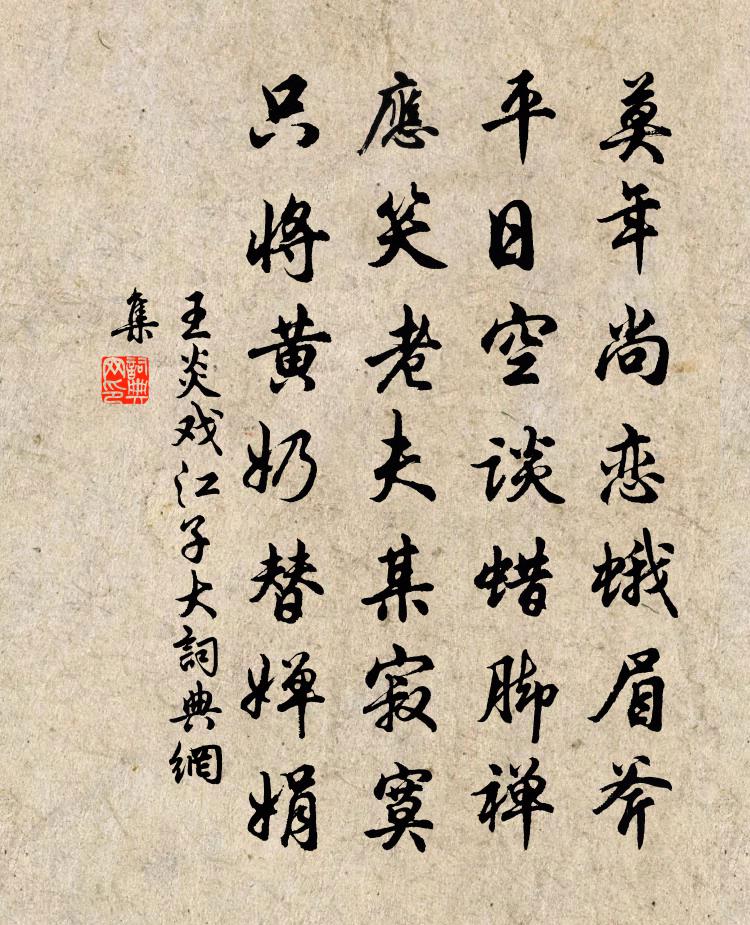 莫年尚恋蛾眉斧
平日空谈蜡脚禅
應笑老夫某寂寞
只将黄奶替婵娟
王炎戏江子大詞典網
集
詞典
网印